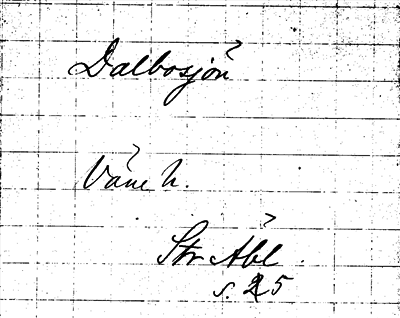 Dalbosjön
Väne h.
Str Åbl
s. 25